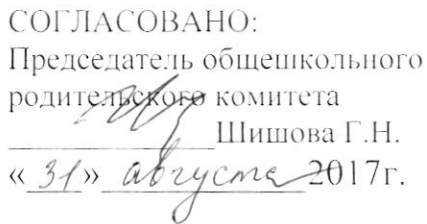 СОГЛАСОВАНО:
Председатель общешкольного
родительского комитета
______________Шишова Г.Н.
«31» августа 2017г.